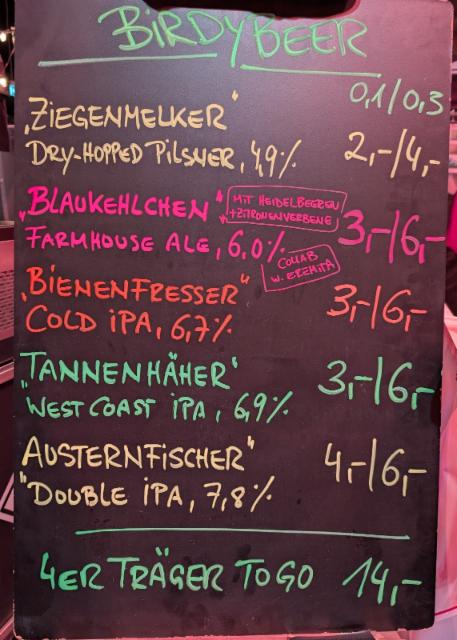 BIRDYBEER
0,1/0,3
„ZIEGENMELKER“
DRY-HOPPED PILSNER, 4,9% 2,-/4,-
„BLAUKEHLCHEN“ MIT HEIDELBEEREN
+ZITRONENVERBENE
FARMHOUSE ALE, 6,0% 3,-/6,-
COLLAB
W. EREMITA
„BIENENFRESSER“
COLD IPA, 6,7% 3,-/6,-
„TANNENHÄHER“
WEST COAST IPA, 6,9% 3,-/6,-
AUSTERNFISCHER“
"DOUBLE IPA, 7,8% 4,-/6,-
4ER TRÄGER TO GO 14,-